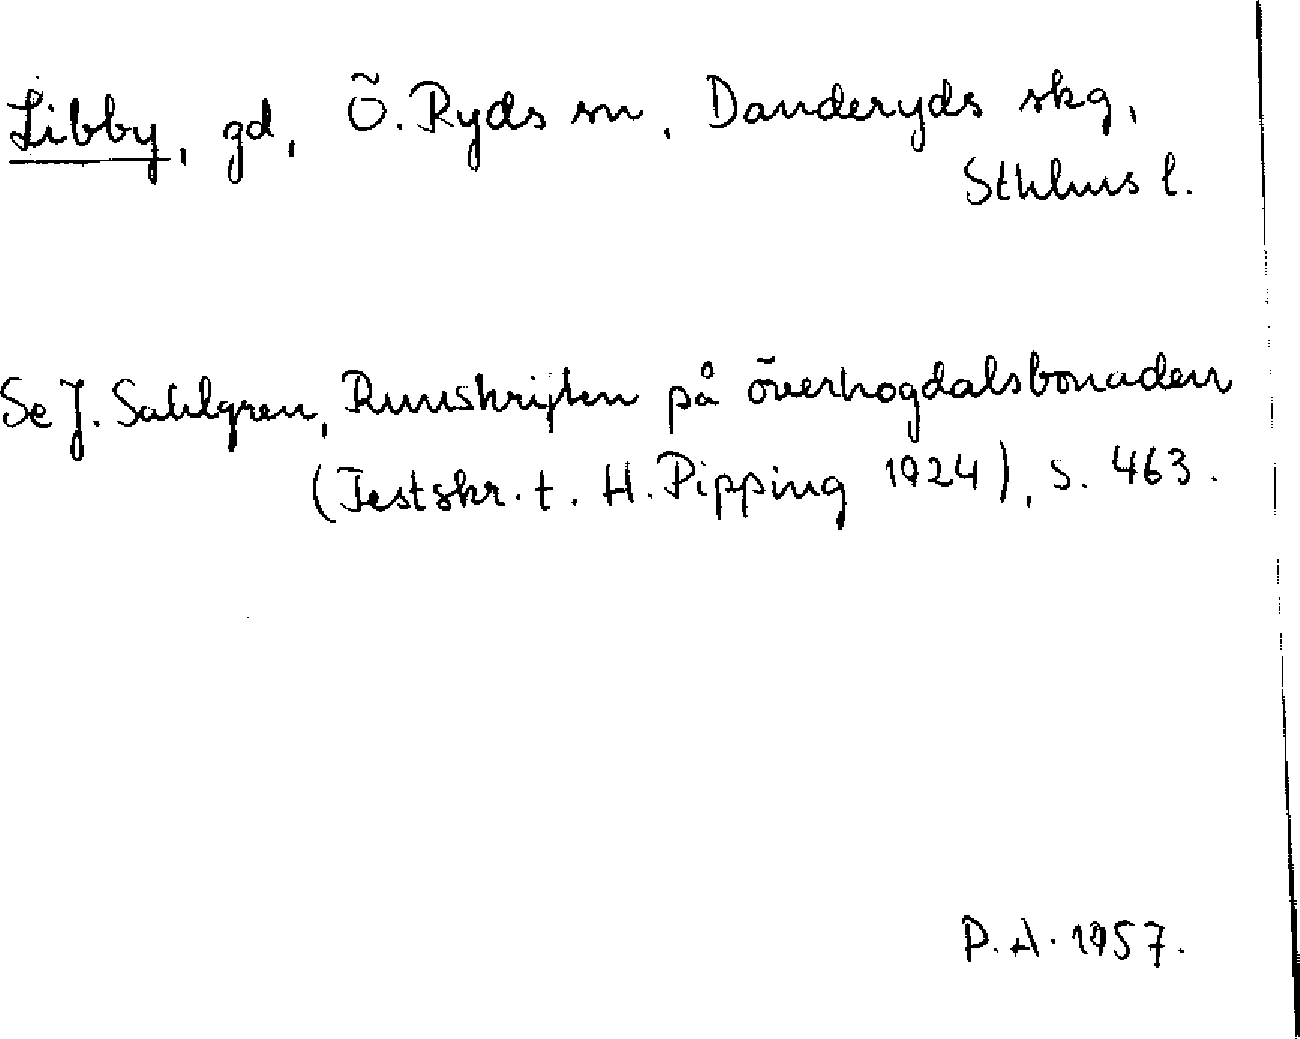 Libby, gd, Ö. Ryds sn, Danderyds skg,
Sthlms l.
Se J. Sahlgren, Runskriften på överhogdalsbonaden
(Festskr. t. H. Pipping 1924), s. 463.
P. A. 1957.